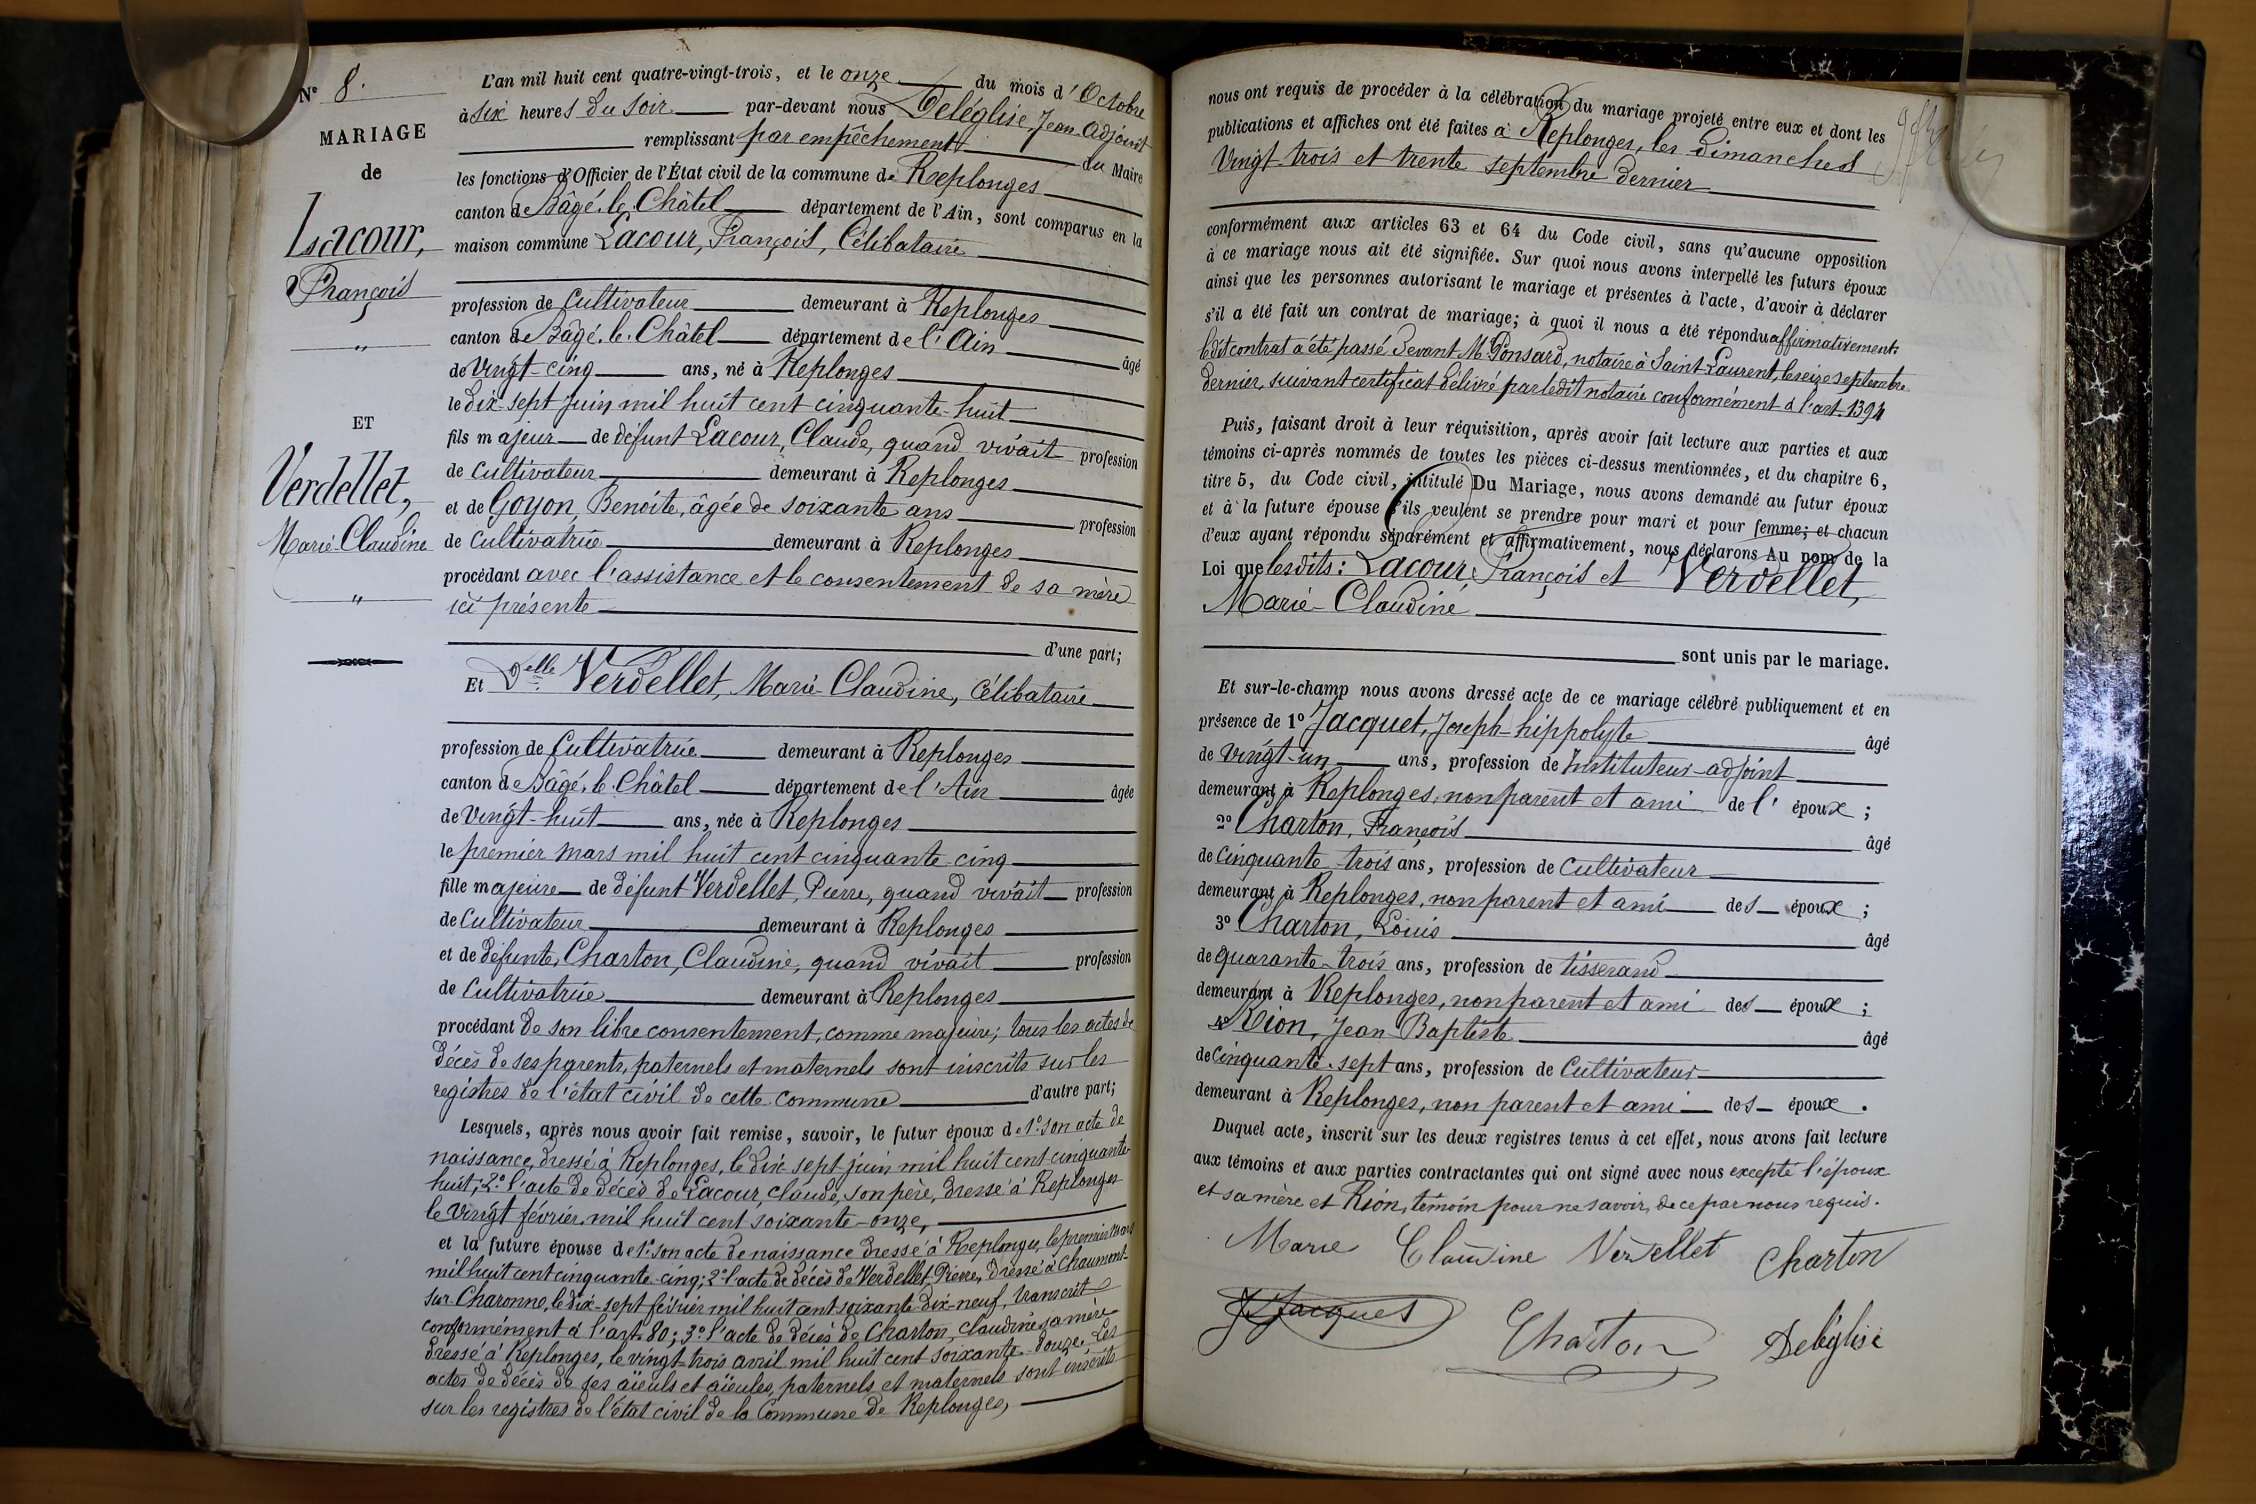 N° 8.
MARIAGE
de
Lacour,
François
"
ET
Verdellet,
Marie-Claudine
"
L'an mil huit cent quatre-vingt-trois, et le onze du mois d'Octobre
à six heures du soir par-devant nous Deléglise, Jean adjoint
remplissant par empêchement du Maire
les fonctions d'Officier de l'État civil de la commune de Replonges
canton de Bâgé-le-Châtel département de l'Ain, sont comparus en la
maison commune Lacour, François, Célibataire
profession de Cultivateur demeurant à Replonges
canton de Bâgé-le-Châtel département de l'Ain âgé
de Vingt-cinq ans, né à Replonges
le dix-sept juin mil huit cent cinquante-huit
fils majeur de défunt Lacour, Claude, quand vivait profession
de Cultivateur demeurant à Replonges
et de Goyon, Benoite, âgée de soixante ans profession
de Cultivatrice demeurant à Replonges
procédant avec l'assistance et le consentement de sa mère
ici présente
d'une part;
Et Delle Verdellet, Marie-Claudine, Célibataire
profession de Cultivatrice demeurant à Replonges
canton de Bâgé-le-Châtel département de l'Ain âgée
de Vingt-huit ans, née à Replonges
le premier Mars mil huit cent cinquante-cinq
fille majeure de défunt Verdellet, Pierre, quand vivait profession
de Cultivateur demeurant à Replonges
et de défunte, Charton, Claudine, quand vivait profession
de Cultivatrice demeurant à Replonges
procédant de son libre consentement, comme majeure; tous les actes de
décès de ses parents, paternels et maternels sont inscrits sur les
registres de l'état civil de cette commune d'autre part;
Lesquels, après nous avoir fait remise, savoir, le futur époux de 1° son acte de
naissance, dressé à Replonges, le dix sept juin mil huit cent cinquante-
huit; 2° l'acte de décès de Lacour, Claude, son père, dressé à Replonges
le Vingt février mil huit cent soixante-onze,
et la future épouse de 1° son acte de naissance dressé à Replonges, le premier Mars
mil huit cent cinquante-cinq; 2° l'acte de décès de Verdellet, Pierre, dressé à Chaumont-
sur-Charonne, le dix-sept février mil huit cent soixante-dix-neuf, transcrit
conformément à l'art. 80; 3° l'acte de décès de Charton, Claudine sa mère
dressé à Replonges, le vingt-trois avril mil huit cent soixante-douze, les
actes de décès de ses aïeuls et aïeules, paternels et maternels sont inscrits
sur les registres de l'état civil de la Commune de Replonges,
nous ont requis de procéder à la célébration du mariage projeté entre eux et dont les
publications et affiches ont été faites à Replonges, les dimanches
Vingt-trois et trente septembre dernier
conformément aux articles 63 et 64 du Code civil, sans qu'aucune opposition
à ce mariage nous ait été signifiée. Sur quoi nous avons interpellé les futurs époux
ainsi que les personnes autorisant le mariage et présentes à l'acte, d'avoir à déclarer
s'il a été fait un contrat de mariage; à quoi il nous a été répondu affirmativement;
ledit contrat a été passé devant M. Ponsard, notaire à Saint-Laurent, le seize septembre
dernier, suivant certificat délivré par ledit notaire conformément à l'art. 1394
Puis, faisant droit à leur réquisition, après avoir fait lecture aux parties et aux
témoins ci-après nommés de toutes les pièces ci-dessus mentionnées, et du chapitre 6,
titre 5, du Code civil, intitulé Du Mariage, nous avons demandé au futur époux
et à la future épouse s'ils veulent se prendre pour mari et pour femme; et chacun
d'eux ayant répondu séparément et affirmativement, nous déclarons Au nom de la
Loi que lesdits: Lacour, François et Verdellet,
Marie-Claudine
sont unis par le mariage.
Et sur-le-champ nous avons dressé acte de ce mariage célébré publiquement et en
présence de 1° Jacquet, Joseph-hippolyte âgé
de vingt-un ans, profession de Instituteur-adjoint
demeurant à Replonges, non parent et ami de l'époux;
2° Charton, François âgé
de Cinquante-trois ans, profession de Cultivateur
demeurant à Replonges, non parent et ami des époux;
3° Charton, Louis âgé
de quarante-trois ans, profession de tisserand
demeurant à Replonges, non parent et ami des époux;
4° Rion, Jean-Baptiste âgé
de Cinquante-sept ans, profession de Cultivateur
demeurant à Replonges, non parent et ami des époux.
Duquel acte, inscrit sur les deux registres tenus à cet effet, nous avons fait lecture
aux témoins et aux parties contractantes qui ont signé avec nous excepté l'époux
et sa mère et Rion, témoin pour ne savoir, de ce par nous requis.
Marie Claudine Verdellet Charton
Jh Jacquet Charton Deléglise